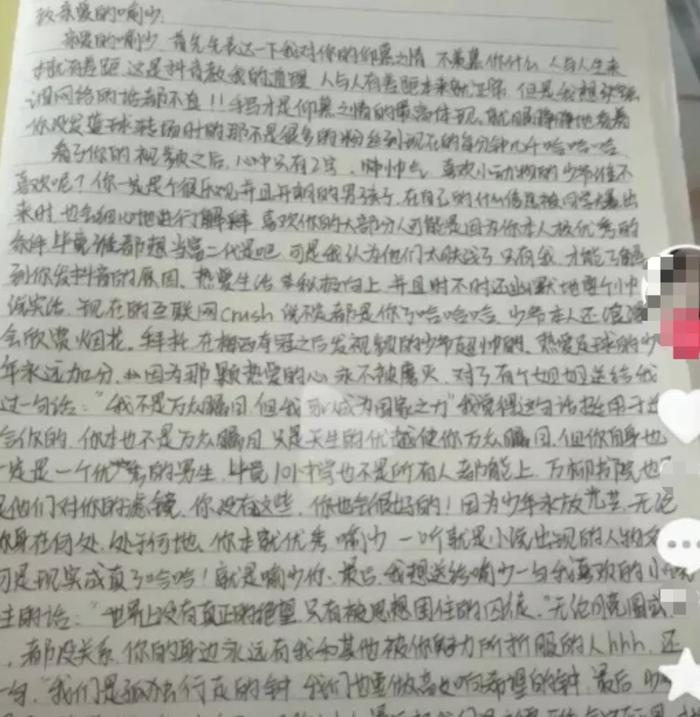 致亲爱的喻少
亲爱的喻少，首先先表达一下我对你的仰慕之情 不羡慕你什么 人与人生来
就有差距 这是抖音教我的道理 人与人有差距本来就正常 但是我想
说网络的话都不真！！手写才是仰慕之情的最高体现 就
你没发篮球转场时的那不是很多的粉丝到现在的每分钟几千哈哈哈
看了你的视频之后，心中只有2字，帅 帅气 喜欢小动物的少年谁不
喜欢呢？你一定是个很乐观并且开朗的男孩子，在自己的什么信息被同学爆出
来时，也会细心地进行了解释 喜欢你的大部分人可能是因为你本人极优秀的
条件 毕竟谁都想当富二代是吧 可是我认为他们太肤浅了 只有我 才能了解
到你发抖音的原因、热爱生活 积极向上，并且时不时还幽默地整个小
现在的互联网crush 说不定都是你了哈哈哈哈 少爷本人还
会欣赏烟花。拜托 在梅西夺冠之后发视频的少爷超帅的，热爱足球的少
年永远加分，因为那颗热爱的心 永不被磨灭，对了有个姐姐送给我
过一句话："我不是万众瞩目，但我可以成为国家之力"我觉得这句话挺适用于
你的，你本也不是万众瞩目 只是天生的优越使你万众瞩目，但你自身也
一定是一个优秀的男生，毕竟101中学也不是所有人都能上，万柳书院也
是他们对你的滤镜，你没有这些，你也会很好的！因为少年永放光芒，无论
你身在何处，处于何地，你本就优秀 喻少 一听就是小说出现的人物
可是现实成真了哈哈！就是喻少你、最后，我想送给喻少一句我喜欢的小
生的话："世界上没有真正的绝望 只有被思想困住的囚徒，"无论
，都没关系，你的身边永远有我和其他被你努力所折服的人hhh，还
一句，"我们是孤独行走的钟，我们也要做高处响希望的钟 最后